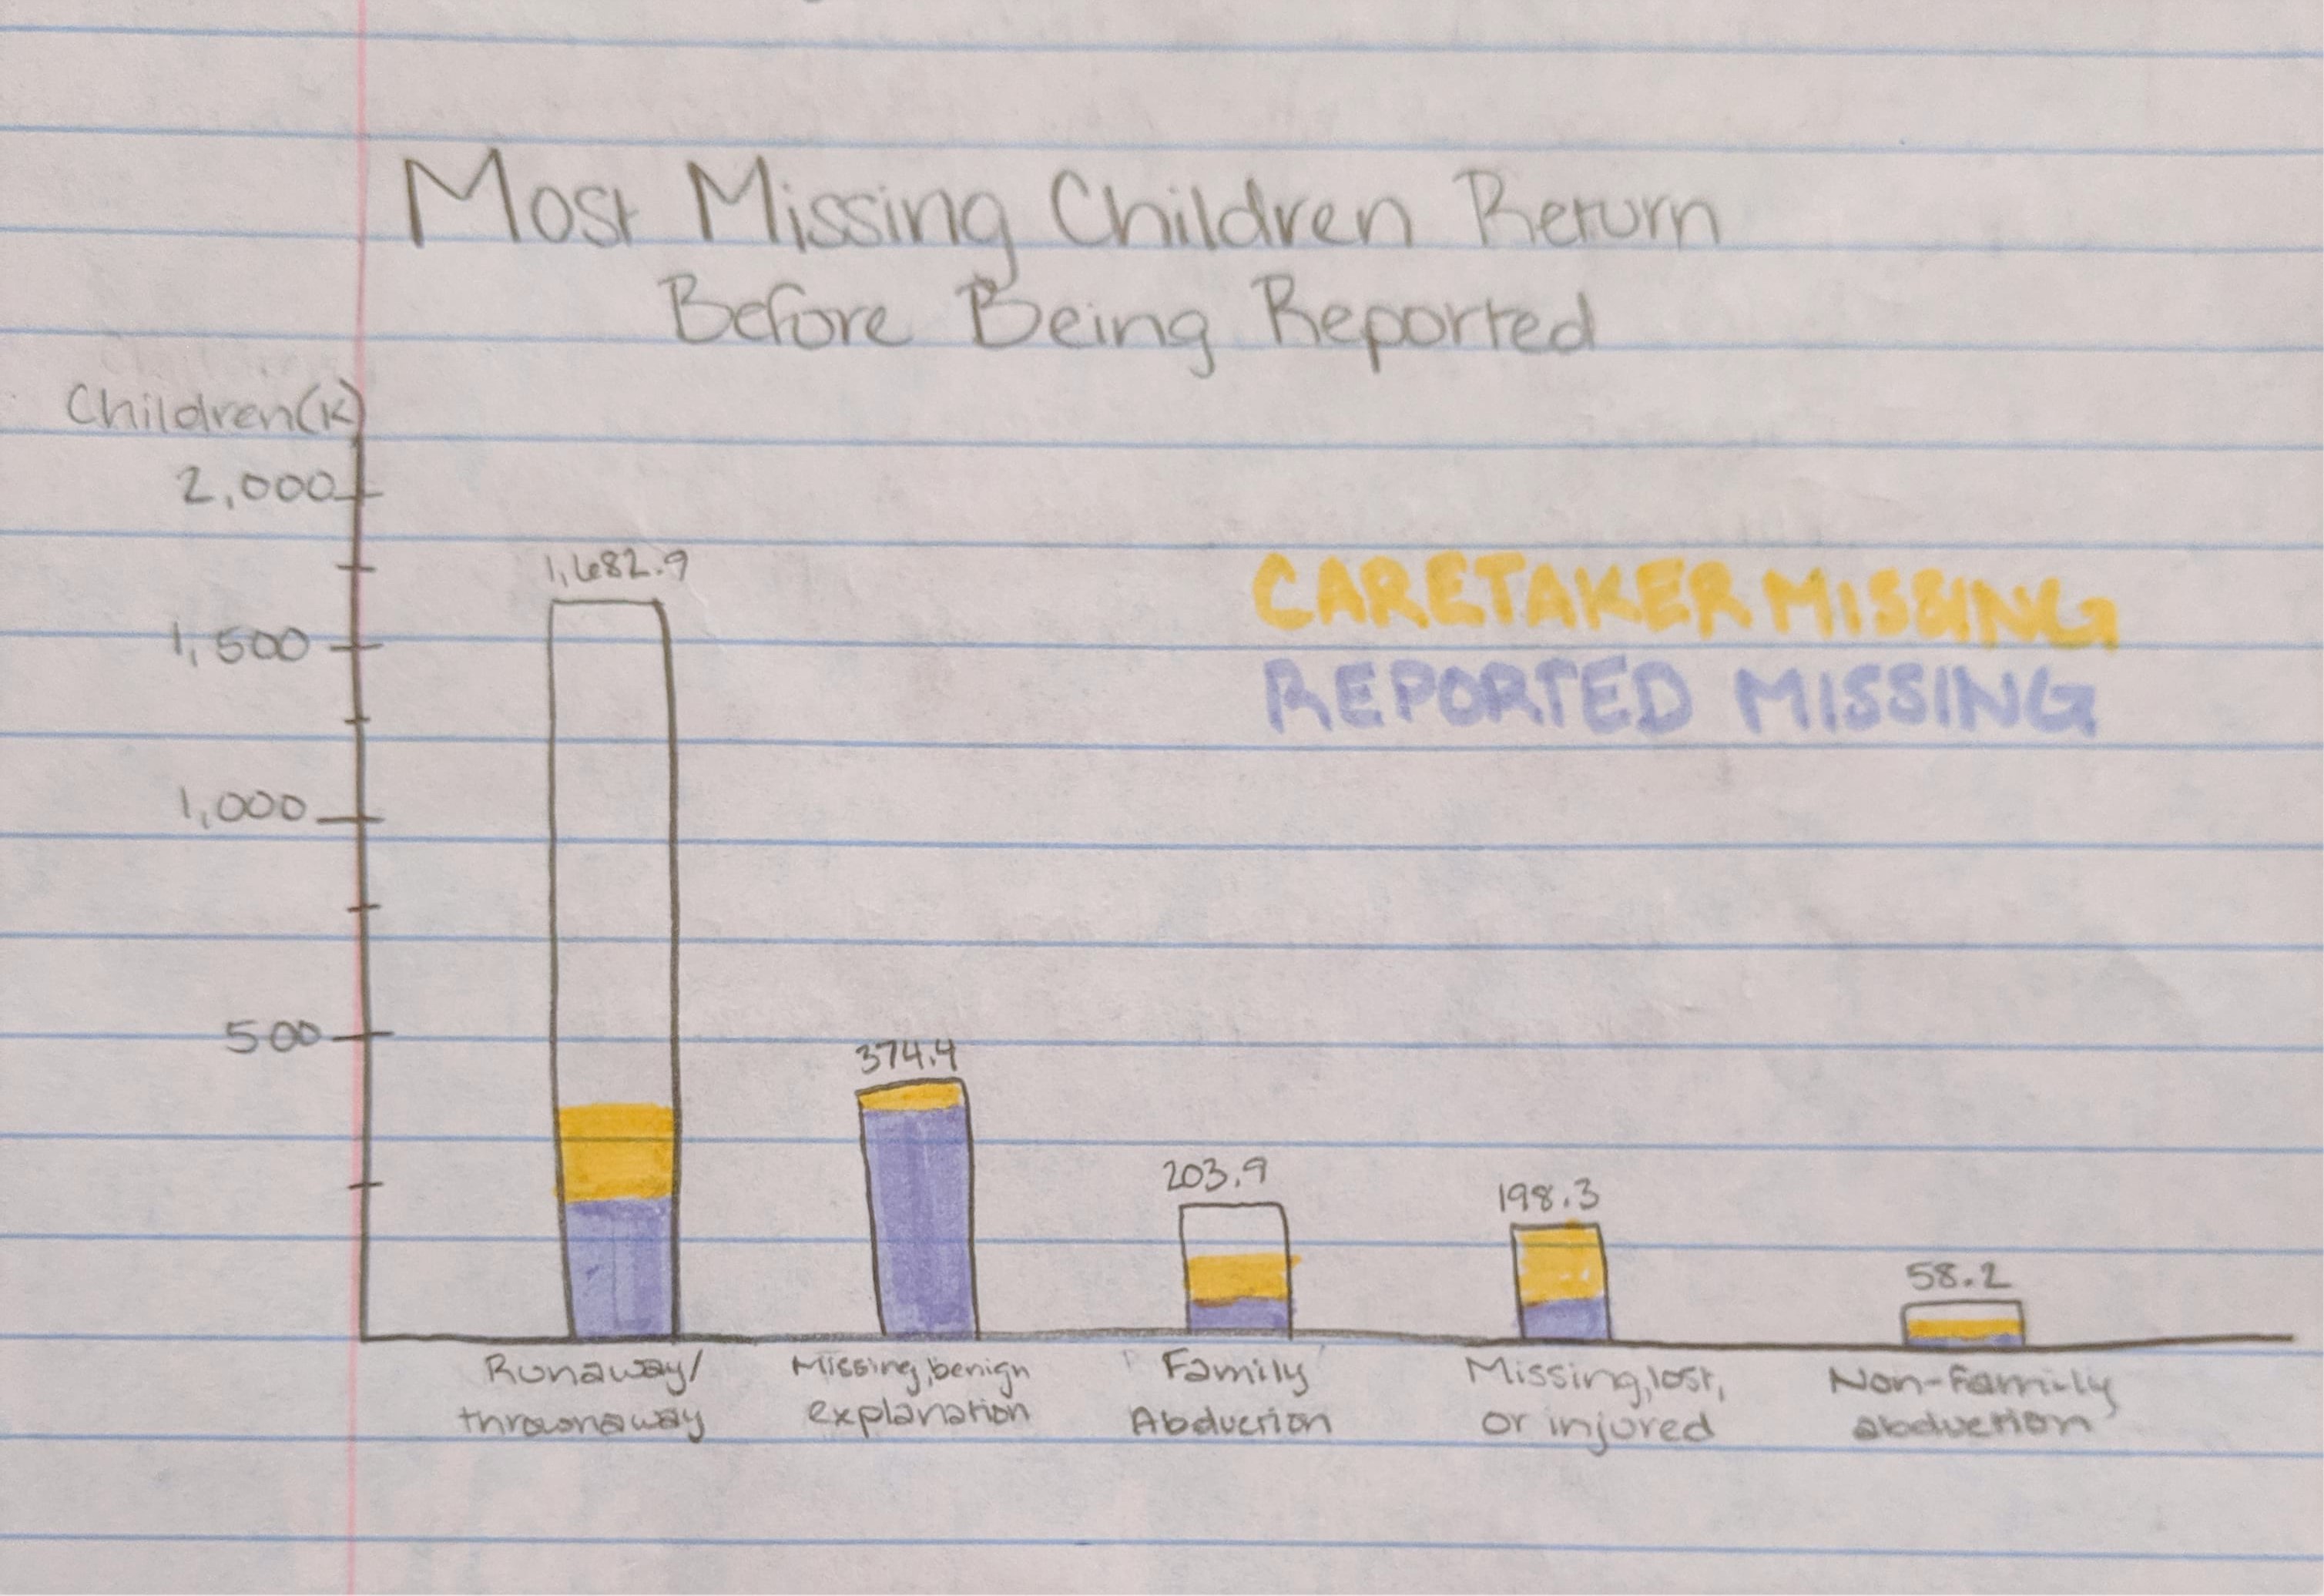 Most Missing Children Return
Before Being Reported
Children(K)
2,000
1,500
1,000
500
1,682.9
374.4
203.9
198.3
58.2
CARETAKER MISSING
REPORTED MISSING
Runaway/
thrownaway
Missing, benign
explanation
Family
Abduction
Missing, lost,
or injured
Non-Family
abduction